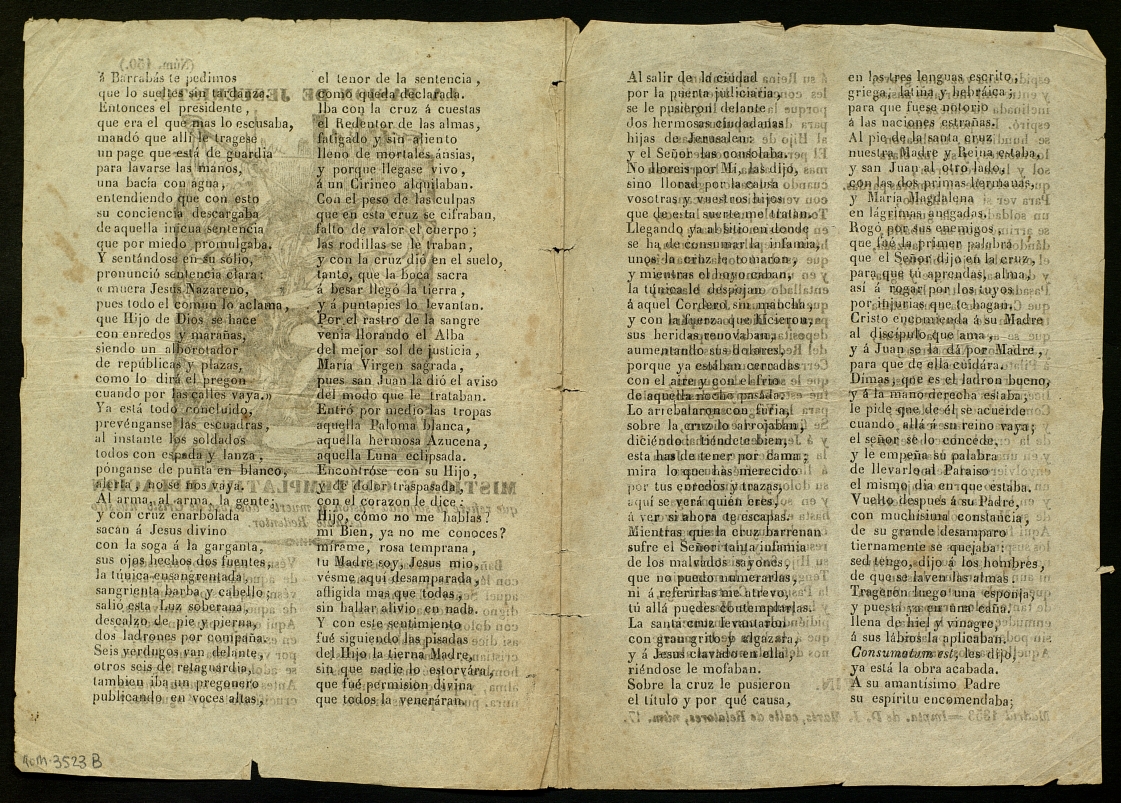 á Barrabás te pedimos
que lo sueltes sin tardanza.
Entonces el presidente,
que era el que mas lo escusaba,
mandó que allí le tragese
un page que está de guardia
para lavarse las manos,
una bacía con agua,
entendiendo que con esto
su conciencia descargaba
de aquella inicua sentencia
que por miedo promulgaba.
Y sentándose en su sólio,
pronunció sentencia clara:
« muera Jesus Nazareno,
pues todo el comun lo aclama,
que Hijo de Dios se hace
con enredos y marañas,
siendo un alborotador
de repúblicas y plazas,
como lo dirá el pregon
cuando por las calles vaya.»
Ya está todo concluido,
prevénganse las escuadras,
al instante los soldados
todos con espada y lanza,
pónganse de punta en blanco,
alerta, no se nos vaya.
Al arma, al arma, la gente;
y con cruz enarbolada
sacan á Jesus divino
con la soga á la garganta,
sus ojos hechos dos fuentes,
la túnica ensangrentada,
sangrienta barba y cabello;
salió esta Luz soberana,
descalzo de pie y pierna,
dos ladrones por compaña.
Seis verdugos van delante,
otros seis de retaguardia,
tambien iba un pregonero
publicando en voces altas,
el tenor de la sentencia,
como queda declarada.
Iba con la cruz á cuestas
el Redentor de las almas,
fatigado y sin aliento
lleno de mortales ánsias,
y porque llegase vivo,
á un Cirineo alquilaban.
Con el peso de las culpas
que en esta cruz se cifraban,
falto de valor el cuerpo;
las rodillas se le traban,
y con la cruz dió en el suelo,
tanto, que la boca sacra
á besar llegó la tierra,
y á puntapies lo levantan.
Por el rastro de la sangre
venia llorando el Alba
del mejor sol de justicia,
María Virgen sagrada,
pues san Juan la dió el aviso
del modo que le trataban.
Entró por medio las tropas
aquella Paloma blanca,
aquella hermosa Azucena,
aquella Luna eclipsada.
Encontróse con su Hijo,
y de dolor traspasada,
con el corazon le dice:
Hijo, cómo no me hablas?
mi Bien, ya no me conoces?
mírame, rosa temprana,
tu Madre soy, Jesus mio,
vésme aquí desamparada,
afligida mas que todas,
sin hallar alivio en nada.
Y con este sentimiento
fué siguiendo las pisadas
del Hijo la tierna Madre,
sin que nadie lo estorvára,
que fué permision divina
que todos la veneráran.
Al salir de la ciudad
por la puerta judiciaria,
se le pusieron delante
dos hermosas ciudadanas
hijas de Jerusalen:
y el Señor las consolaba.
No lloreis por Mí, las dijo,
sino llorad por la causa
vosotras y vuestros hijos
que de esta suerte me tratan.
Llegando ya al sitio en donde
se ha de consumar la infamia,
unos la cruz le tomaron,
y mientras el hoyo caban,
la túnica le despojan
á aquel Cordero sin mancha,
y con la fuerza que hicieron,
sus heridas renovaban,
aumentando sus dolores,
porque ya estaban cerradas
con el aire y con el frio
de aquella noche pasada.
Lo arrebataron con furia,
sobre la cruz lo arrojaban,
diciéndo: tiéndete bien,
esta has de tener por cama;
mira lo que has merecido
por tus enredos y trazas,
aquí se verá quién eres,
á ver si ahora te escapas.
Mientras que la cruz barrenan
sufre el Señor tanta infamia
de los malvados sayones,
que no puedo numerarlas,
ni á referirlas me atrevo,
tú allá puedes contemplarlas.
La santa cruz levantaron
con gran grito y algazara,
y á Jesus clavado en ella,
riéndose le mofaban.
Sobre la cruz le pusieron
el título y por qué causa,
en las tres lenguas escrito,
griega, latina y hebráica;
para que fuese notorio
á las naciones estrañas.
Al pie de la santa cruz
nuestra Madre y Reina estaba,
y san Juan al otro lado,
con las dos primas hermanas,
y María Magdalena
en lágrimas anegadas.
Rogó por sus enemigos,
que fué la primer palabra
que el Señor dijo en la cruz,
para que tú aprendas, alma,
así á rogar por los tuyos
por injurias que te hagan.
Cristo encomienda á su Madre
al discípulo que ama,
y á Juan se la dá por Madre,
para que de ella cuidára.
Dimas, que es el ladron bueno,
y á la mano derecha estaba,
le pide que de él se acuerde
cuando allá á su reino vaya;
el señor se lo concede,
y le empeña su palabra
de llevarlo al Paraiso
el mismo dia en que estaba.
Vuelto despues á su Padre,
con muchísima constancia,
de su grande desamparo
tiernamente se quejaba:
sed tengo, dijo á los hombres,
de que se laven las almas.
Trageron luego una esponja,
y puesta ya en una caña,
llena de hiel y vinagre,
á sus lábios la aplicaban.
Consumatum est, les dijo,
ya está la obra acabada.
A su amantísimo Padre
su espíritu encomendaba;
ROM-3523 B